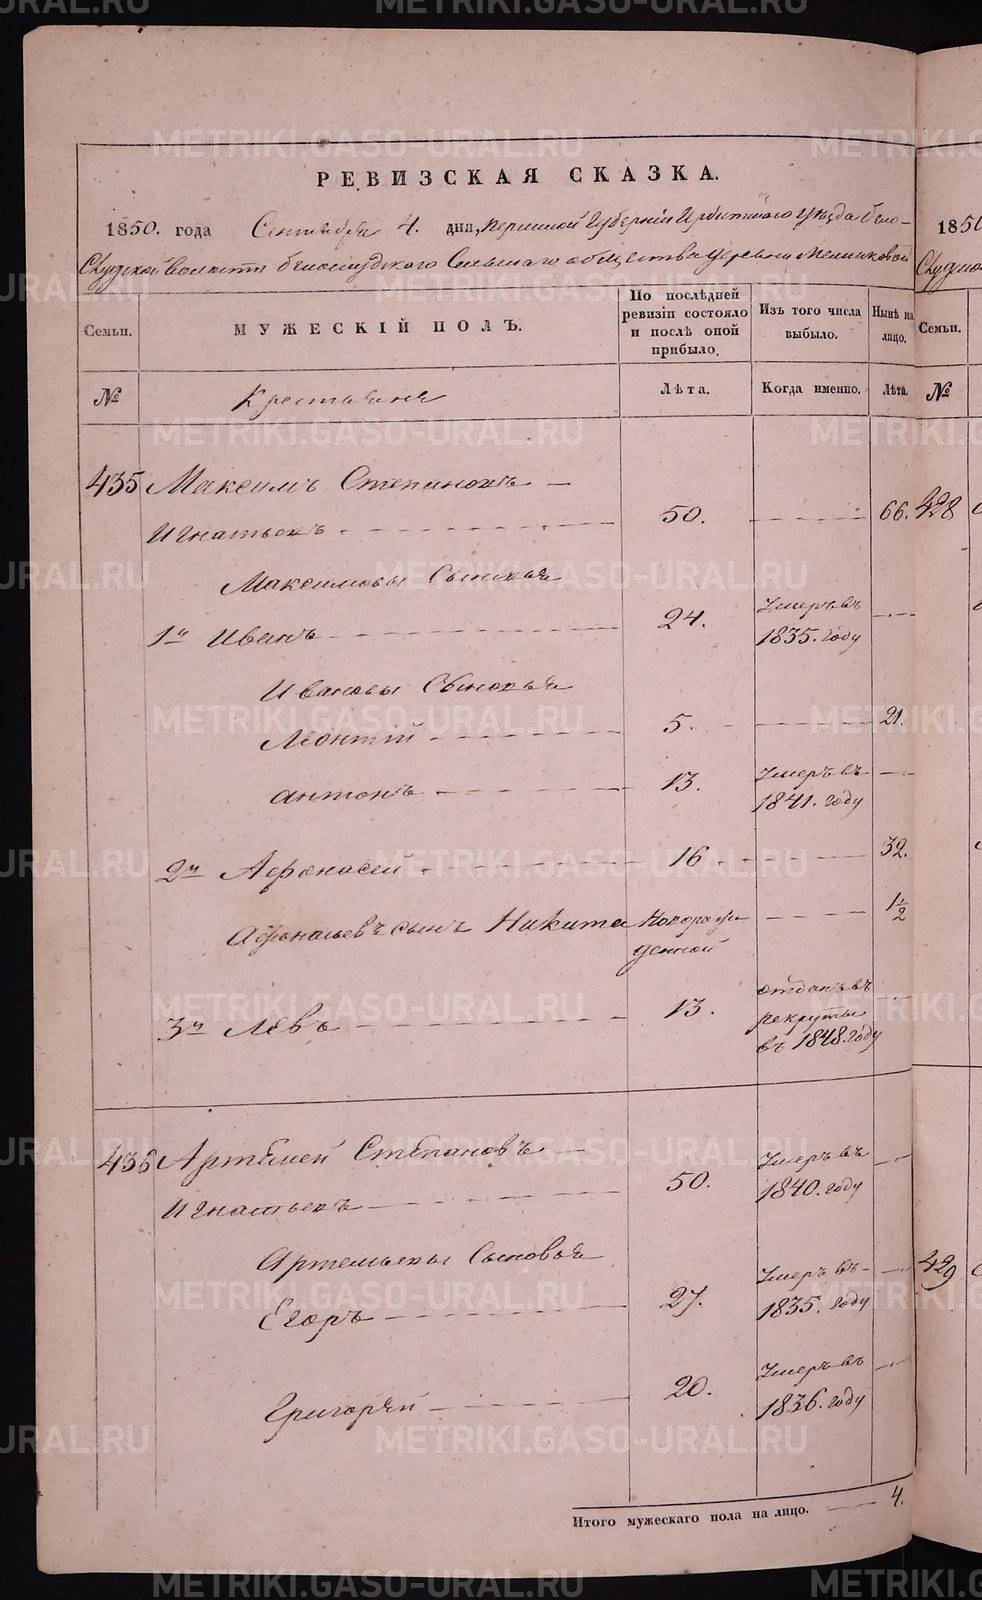 METRIKI.GASO-URAL.RU
РЕВИЗСКАЯ СКАЗКА.
1850. года Сентября 4. дня, Пермской Губернии Ирбитского Уезда Бело-
Слудской волости белослудского Сельского общества деревни
Семьи. МУЖЕСКІЙ ПОЛЪ. По послѣдней ревизіи состояло и послѣ оной прибыло. Изъ того числа выбыло. Нынѣ на лицо.
№ Крестьяне Лѣта. Когда именно. Лѣта.
435 Максимъ Степановъ
Игнатьевъ 50. 66.
Максимовы Сыновья
1й Иванъ 24. Умеръ въ 1835. году
Ивановы Сыновья
Леонтій 5. 21.
Антонъ 13. Умеръ въ 1841. году
2й Афонасей 16 32.
Афонасьевъ сынъ Никита Новорожденной 1 1/2
3й Левъ 13. отданъ въ рекруты въ 1848. году
436 Артемей Степановъ
Игнатьевъ 50. Умеръ въ 1840. году
Артемьевы Сыновья
Егоръ 27. Умеръ въ 1835. году
Григорей 20. Умеръ въ 1836. году
Итого мужескаго пола на лицо. 4.
185
Семьи.
№
428
429